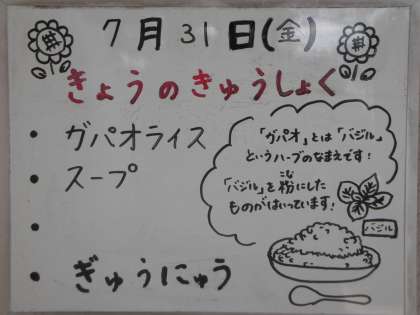 7月31日(金)
きょうのきゅうしょく
・ガパオライス
・スープ
・
・ぎゅうにゅう
「ガパオ」とは「バジル」
というハーブのなまえです!
「バジル」を粉にした
こな
ものがはいっています!
バジル